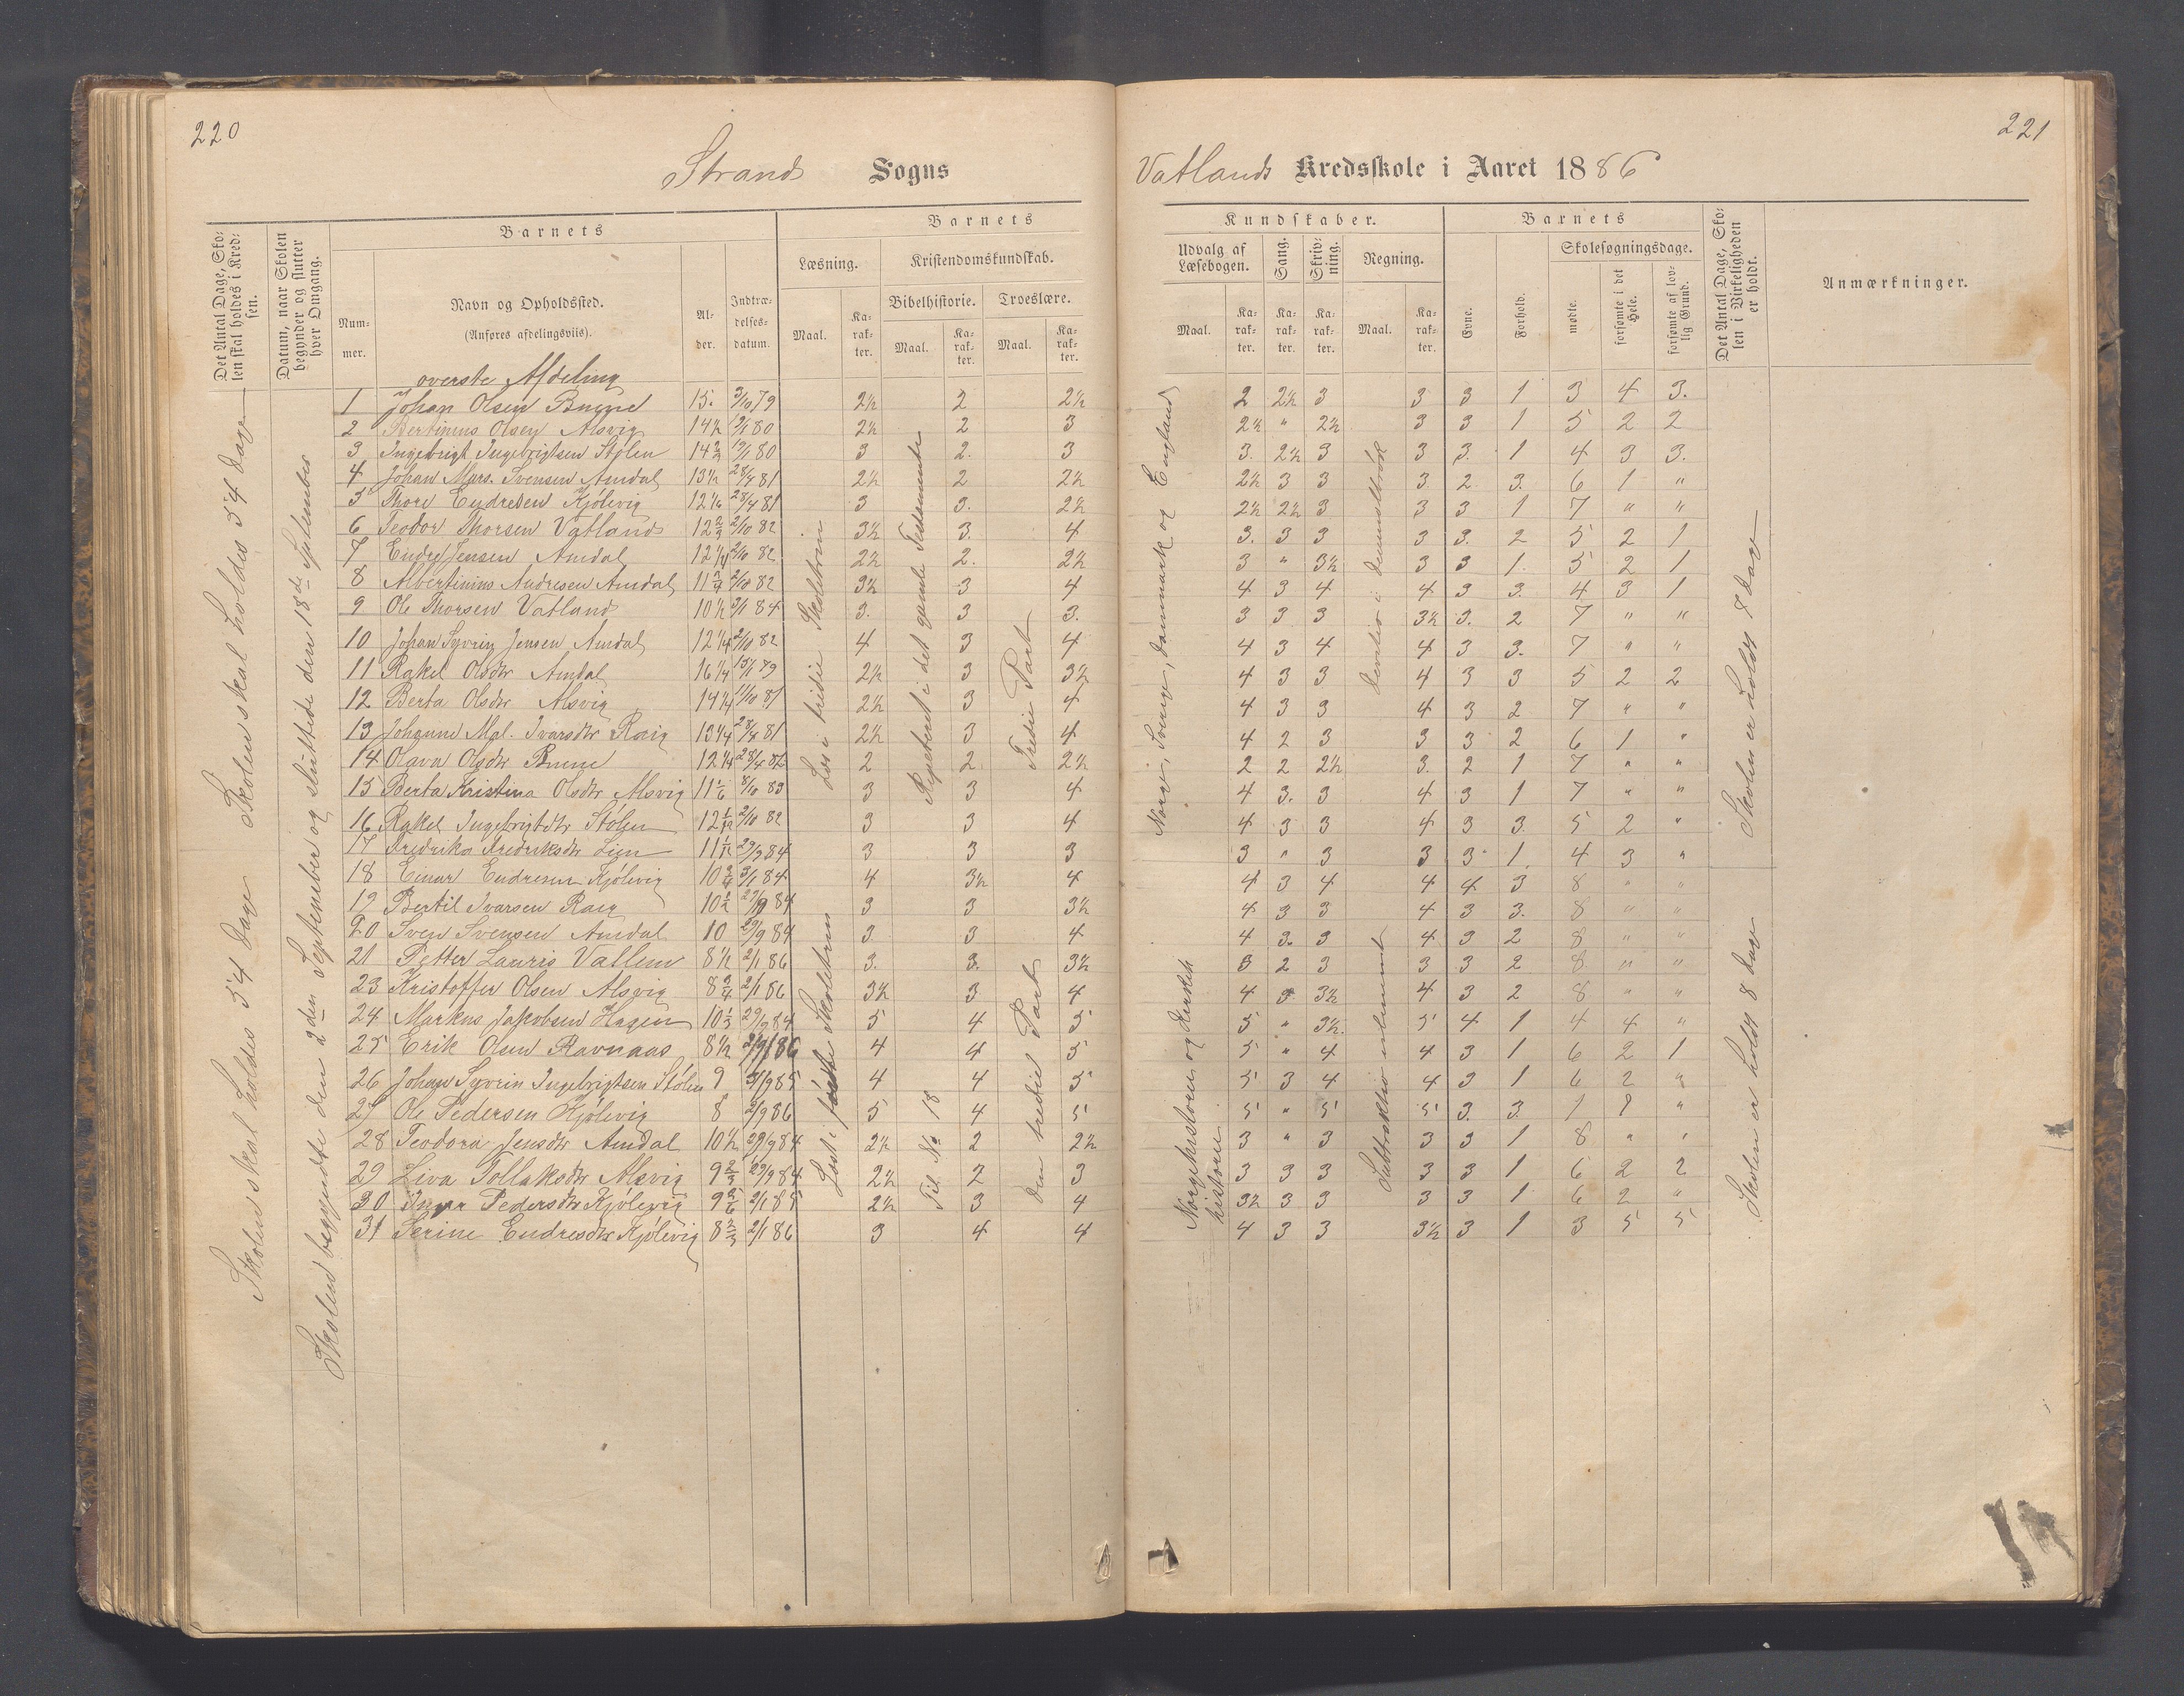 220
221
Strands Sogns
Vatlands Kredsskole i Aaret 1886
Det Antal Dage, Skolen skal holdes i Kredsen.
Datum, naar Skolen begynder og slutter hver Omgang.
Barnets
Nummer.
Navn og Opholdssted.
(Anføres afdelingsviis).
Alder.
Indtrædelsesdatum.
Barnets
Læsning.
Kristendomskundskab.
Bibelhistorie.
Troeslære.
Maal.
Karakter.
Maal.
Karakter.
Maal.
Karakter.
Kundskaber.
Udvalg af Læsebogen.
Sang.
Skrivning.
Regning.
Maal.
Karakter.
Karakter.
Karakter.
Maal.
Karakter.
Barnets
Evne.
Forhold.
Skolesøgningsdage.
mødte.
forsømte i det Hele.
forsømte af lovlig Grund.
Det Antal Dage, Skolen i Virkeligheden er holdt.
Anmærkninger.
overste Afdeling
1 Johan Olsen Brune 15. 3/10 79 2½ 2 2½ 2 2½ 3 3 3 1 3 4 3.
2 Bertinius Olsen Alsvig 14½ 80 2½ 2 3 2½ " 2½ 3 3 1 5 2 2
3 Ingebrigt Ingebrigtsen Stølen 14 2/3 80 3 2. 3 3. 2½ 3 3 3. 1 4 3 3.
4 Johan Mars. Svensen Amdal 13½ 28/4 81 2½ 2 2½ 2½ 3 3 3. 2. 3. 6 1 "
5 Thore Endresen Kjölevig 12 1/6 28/4 81 3 3. 2½ 2½ 2½ 3 3 3 1 7 " "
6 Teodor Thorsen Vatland 12 2/3 2/10 82 3½ 3. 4 3. 3 3 3 3. 2 5 2 1
7 Endre Jensen Amdal 12 1/4 2/10 82 2½ 2. 2½ 3 " 3½ 3 3 1. 5 2 1
8 Albertinius Andresen Amdal 11 3/4 2/10 82 3½ 3 4 4 3 4 4 3 3. 4 3 1
9 Ole Thorsen Vatland 10½ 3/1 84 3. 3 3. 3 3 3 3½ 3. 2 7 " "
10 Johan Syvrin Jensen Amdal 12 1/4 2/10 82 4 3 4 4 3 4 4 3 3. 7 " "
11 Rakel Olsdtr Amdal 16 1/4 79 2½ 3 3½ 4 3 3 4 3 3 5 2 2
12 Berta Olsdtr Alsvig 14 1/4 11/10 81 2½ 3 4 4 3 3 4 3 2 7 " "
13 Johanne Mal. Ivarsdtr 13 1/4 28/4 81 2½ 3 4 4 2 3 3 3 2 6 1 "
14 Olava Olsdtr Brune 12 1/4 28/4 82 2 2 2½ 2 2 2½ 3. 2 1 7 " "
15 Berta Kristina Olsdtr Alsvig 11 1/6 8/10 83 3 3 4 4 3. 3 4 3 1 7 " "
16 Rakel Ingebrigtdtr Stølen 12 1/12 2/10 82 3 3 4 4 3 3 4 3 3. 5 2 "
17 Fredrika Fredriksdtr Lien 11 1/12 29/9 84 3 3 3 3 " 3 3 3 1. 4 3 "
18 Einar Endresen Kjölevig 10 3/4 3/1 84 4 3½ 4 4 3 4 4 4 3 8 " "
19 Bertil Ivarsen 10½ 29/9 84 3 3 3½ 4 3 3 4 3 3. 8 " "
20 Sven Svensen Amdal 10 29/9 84 3. 3 4 4 3. 3 4 3 2 8 " "
21 Petter Lauris Vatland 8½ 2/1 86 3. 3. 3½ 3 2 3 3 3 2 8 " "
23 Kristoffer Olsen Alsvig 8 3/4 2/1 86 3½ 3 4 4 3 3½ 4 3 2 8 " "
24 Markus Jakobsen Hagen 10 1/3 29/9 84 5 4 5 5 " 3½. 5 4 1 4 4 "
25 Erik Olsen Ravnaas 8½ 86 4 4 5 5 " 4 4 3 1 6 2 1
26 Johan Syvrin Ingebrigtsen Stølen 9 85 4 4 5 5 3 4 4 3 1 6 2 "
27 Ole Pedersen Kjölevig 8 2/9 86 5 4 5 5 " 5 5 3. 3. 1 7 "
28 Teodora Jensdtr Amdal 10½ 29/9 84 2½ 2 2½ 3 " 3 3 3 1 8 " "
29 Liva Tollaksdtr Alsvig 9 2/3 29/9 84 2½ 2 3 3 3 3 3 3 1 6 2 2
30 Inger Pedersdtr Kjölevig 9 5/6 2/1 85 2½ 3 4 3½ 3 3 3 3 1 6 2 "
31 Serine Endresdtr Kjölevig 8 2/3 2/1 86 3 4 4 4 3 3 3½ 3 1 3 5 5
Skolen skal holdes 54 dage
Skolen skal holdes 54 dage
Skolen begyndte den 2den September og sluttede den 18de September
Læs i tredie Skoletrin
Læst i første Skoletrin
Repeteret i det gamle Testamente
Til No 18
Tredie Part
den tredie Part
Norge, Sverige, Danmark og England
Norgehistorien og Kirkehistorien
Division i decimalbrøk
Subtraktion
Skolen er holdt 7 dage
Skolen er holdt 8 dage